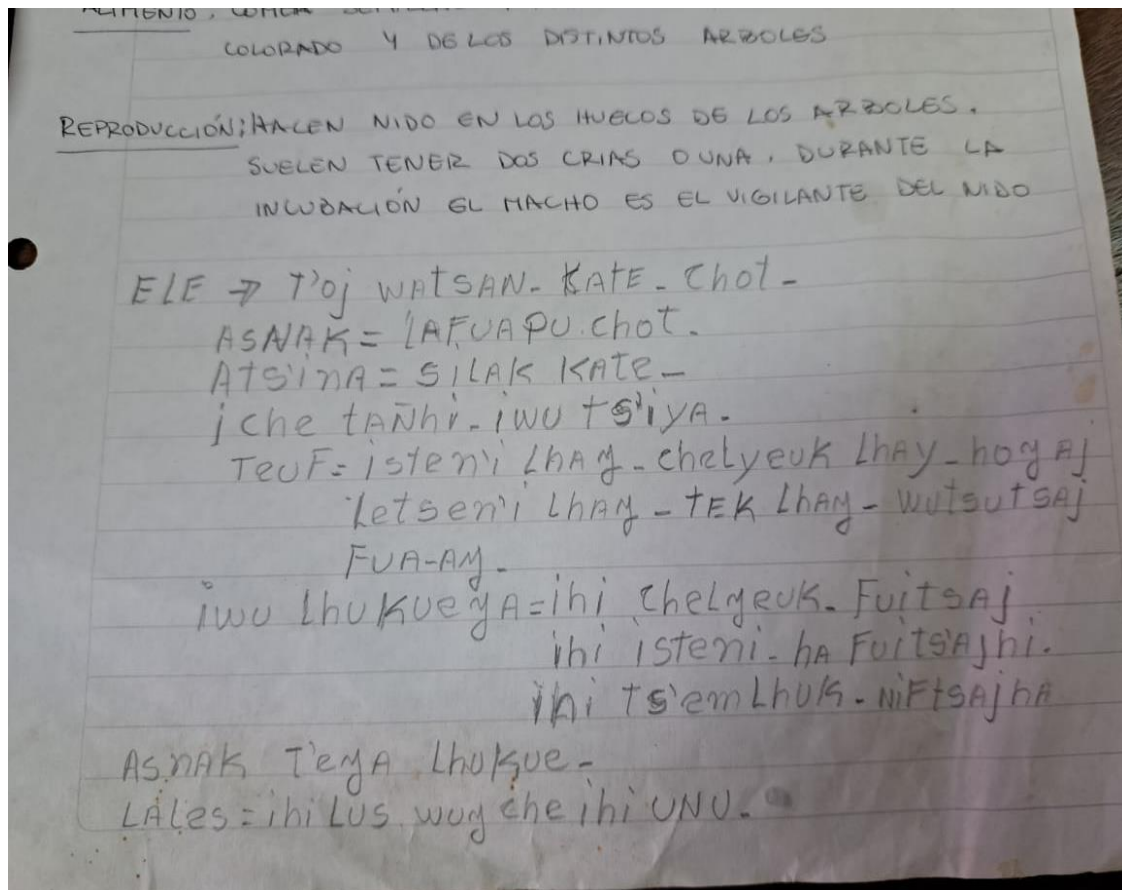 ALIMENTO: COMEN
COLORADO Y DE LOS DISTINTOS ARBOLES
REPRODUCCIÓN: HACEN NIDO EN LOS HUECOS DE LOS ARBOLES.
SUELEN TENER DOS CRIAS O UNA. DURANTE LA
INCUBACIÓN EL MACHO ES EL VIGILANTE DEL NIDO
ELE → T'oj WATSAN - KATE - Chot -
ASNAK = LAFUAPU.Chot.
ATS'inA = SILAK KATE -
iche tAÑhi - iwu tS'iYA.
TEUF = isten'i LhAy - chelyeuk LhAy - hoy Aj
Letsen'i LhAy - TEK LhAy - wutsutsAj
FUA-AY -
iwu LhuKueyA = ihi chelyeuk - FuitsAj
ihi isteni - hA FuitsAjhi.
ihi TS'emLhuk - NiFtsAjhA
ASNAK T'eyA Lhukue -
LALes = ihi Lus wuy che ihi UNU.